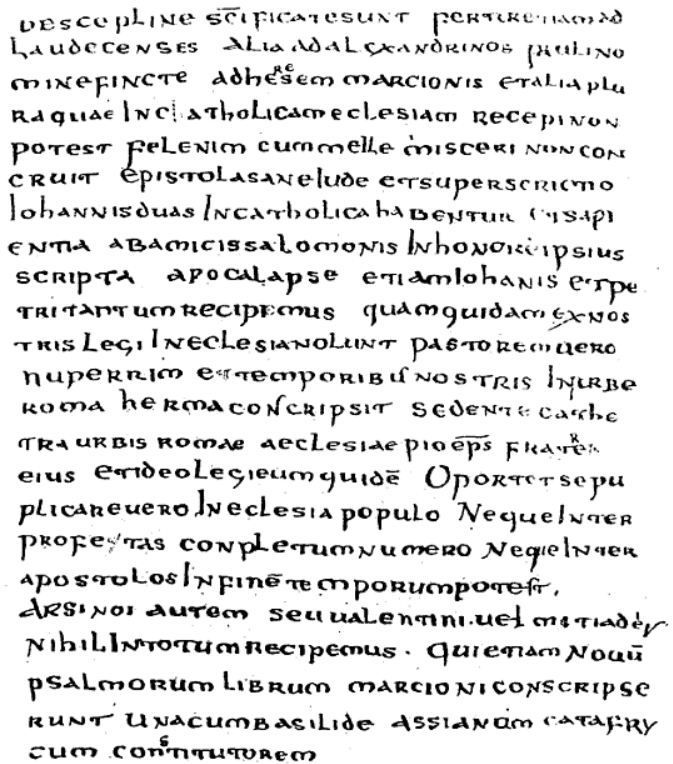 descepline scīficate sunt fertur etiam ad
Laudecenses alia ad alexandrinos pauli no
mine fincte ad heresem marcionis et alia plu
ra quae In catholicam eclesiam recepi non
potest fel enim cum melle misceri non con
cruit epistola sane Iude et superscrictio
Iohannis duas In catholica habentur et sapi
entia ab amicis salomonis In honore ipsius
scripta apocalapse etiam Iohanis et pe
tri tantum recipemus quam quidam ex nos
tris legi In eclesia nolunt pastorem uero
nuperrim et temporibus nostris In urbe
roma herma conscripsit sedente cathe
tra urbis romae aeclesiae pio ep̄s frater
eius et ideo legi eum quidē Oportet se pu
plicare uero In eclesia populo Neque Inter
profetas conpletum numero Neque Inter
apostolos In finē temporum potest.
Arsinoi autem seu ualentini. uel mitiadis
nihil In totum recipemus. Qui etiam nouū
psalmorum librum marcioni conscripse
runt una cum basilide assianum catafry
cum constitutorem